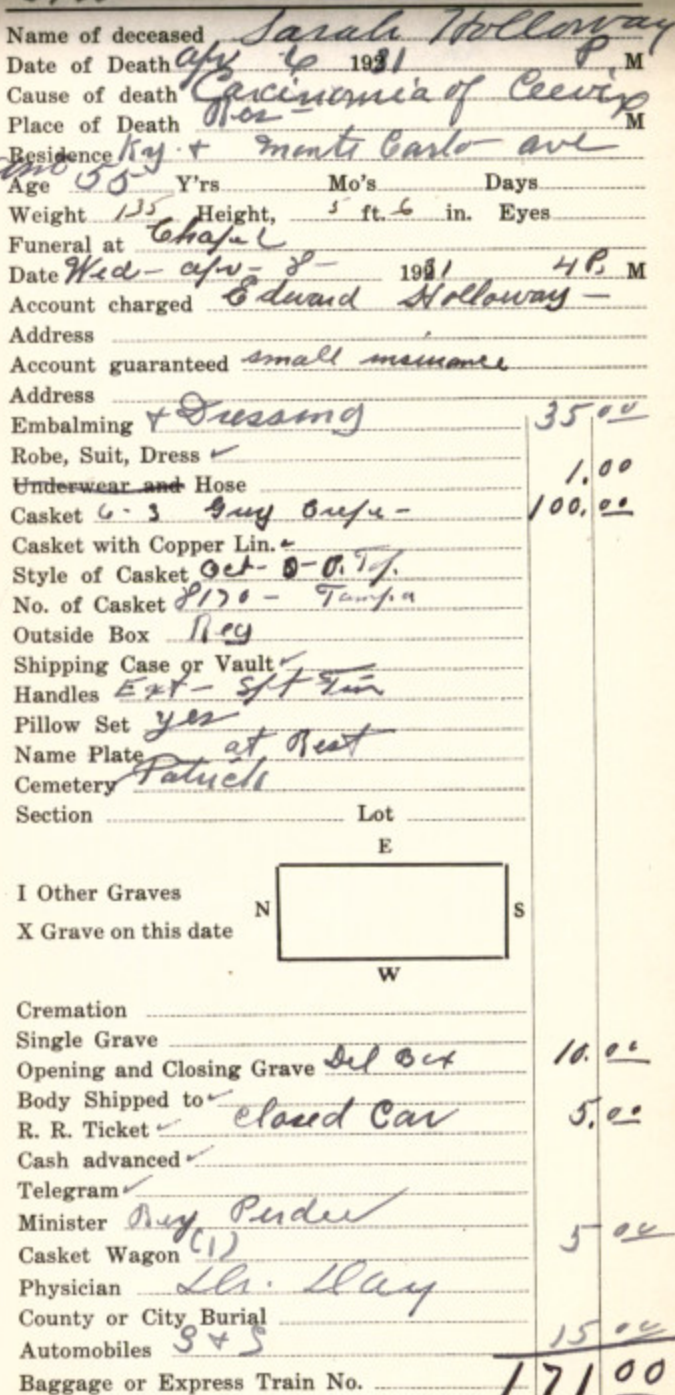 Name of deceased Sarah Holloway
Date of Death Apr 6 1931 P. M
Cause of death Carcinomia of Cervix
Place of Death Res - M
Residence Ky. + Monte Carlo ave
Age 55 Y'rs Mo's Days
Weight 135 Height, 5 ft. 6 in. Eyes
Funeral at Chapel
Date Wed - apr - 8 - 1931 4 P. M
Account charged Edward Holloway -
Address
Account guaranteed small insurance
Address
Embalming + Dressing 35 00
Robe, Suit, Dress ✓
Underwear and Hose 1.00
Casket 6-3 Grey Crepe - 100.00
Casket with Copper Lin.
Style of Casket Oct - O-P. Top.
No. of Casket 8170 - Tampa
Outside Box Reg
Shipping Case or Vault ✓
Handles Ext -
Pillow Set yes
Name Plate at Rest
Cemetery Patrick
Section Lot
E
I Other Graves
N S
X Grave on this date
W
Cremation
Single Grave
Opening and Closing Grave Del Box 10.00
Body Shipped to ✓
R. R. Ticket ✓ closed Car 5.00
Cash advanced ✓
Telegram ✓
Minister Rev Perdue
Casket Wagon (1) 5 00
Physician Dr. Day
County or City Burial
Automobiles S + S 15 00
Baggage or Express Train No. 171 00